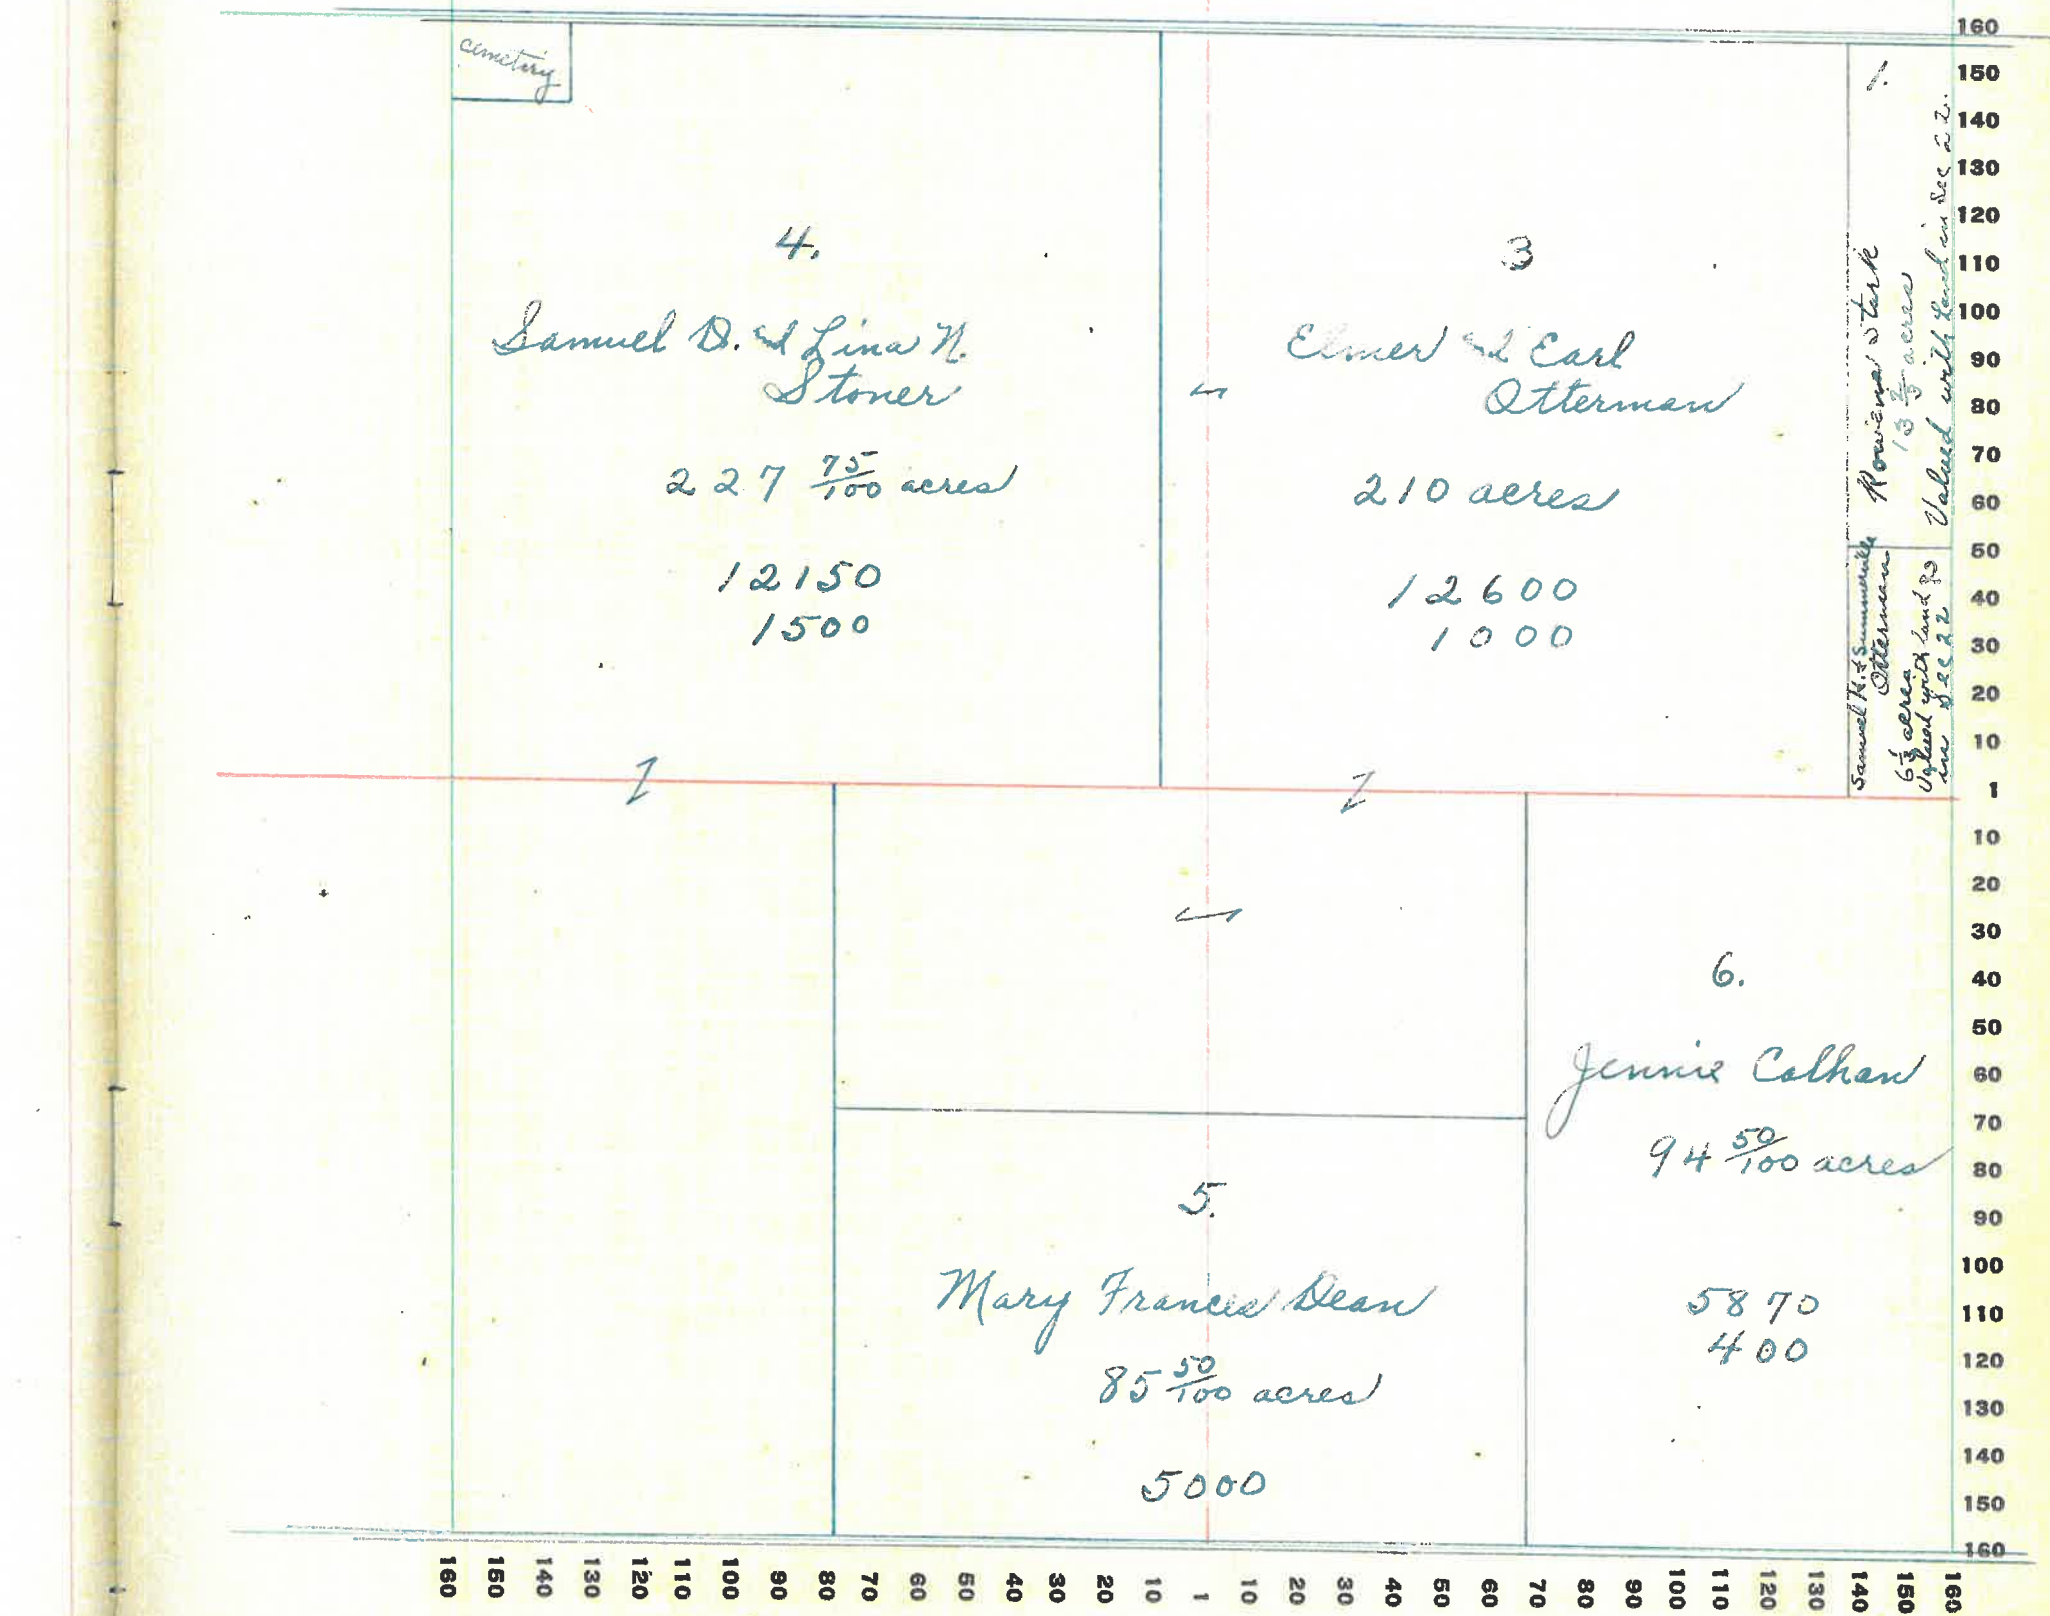 cemetery
4.
Samuel D. and Lina N.
Stoner
227 75/100 acres
12150
1500
3
Elmer and Earl
Otterman
210 acres
12600
1000
1.
Rowena Stark
13 2/3 acres
Valued with Land in Sec 22.
Samuel K. & Summerville
Otterman
6 1/3 acres
Valued with land
in Sec 22
5.
Mary Frances Dean
85 50/100 acres
5000
6.
Jennie Calhan
94 50/100 acres
5870
400
160
150
140
130
120
110
100
90
80
70
60
50
40
30
20
10
1
10
20
30
40
50
60
70
80
90
100
110
120
130
140
150
160
160 150 140 130 120 110 100 90 80 70 60 50 40 30 20 10 1 10 20 30 40 50 60 70 80 90 100 110 120 130 140 150 160